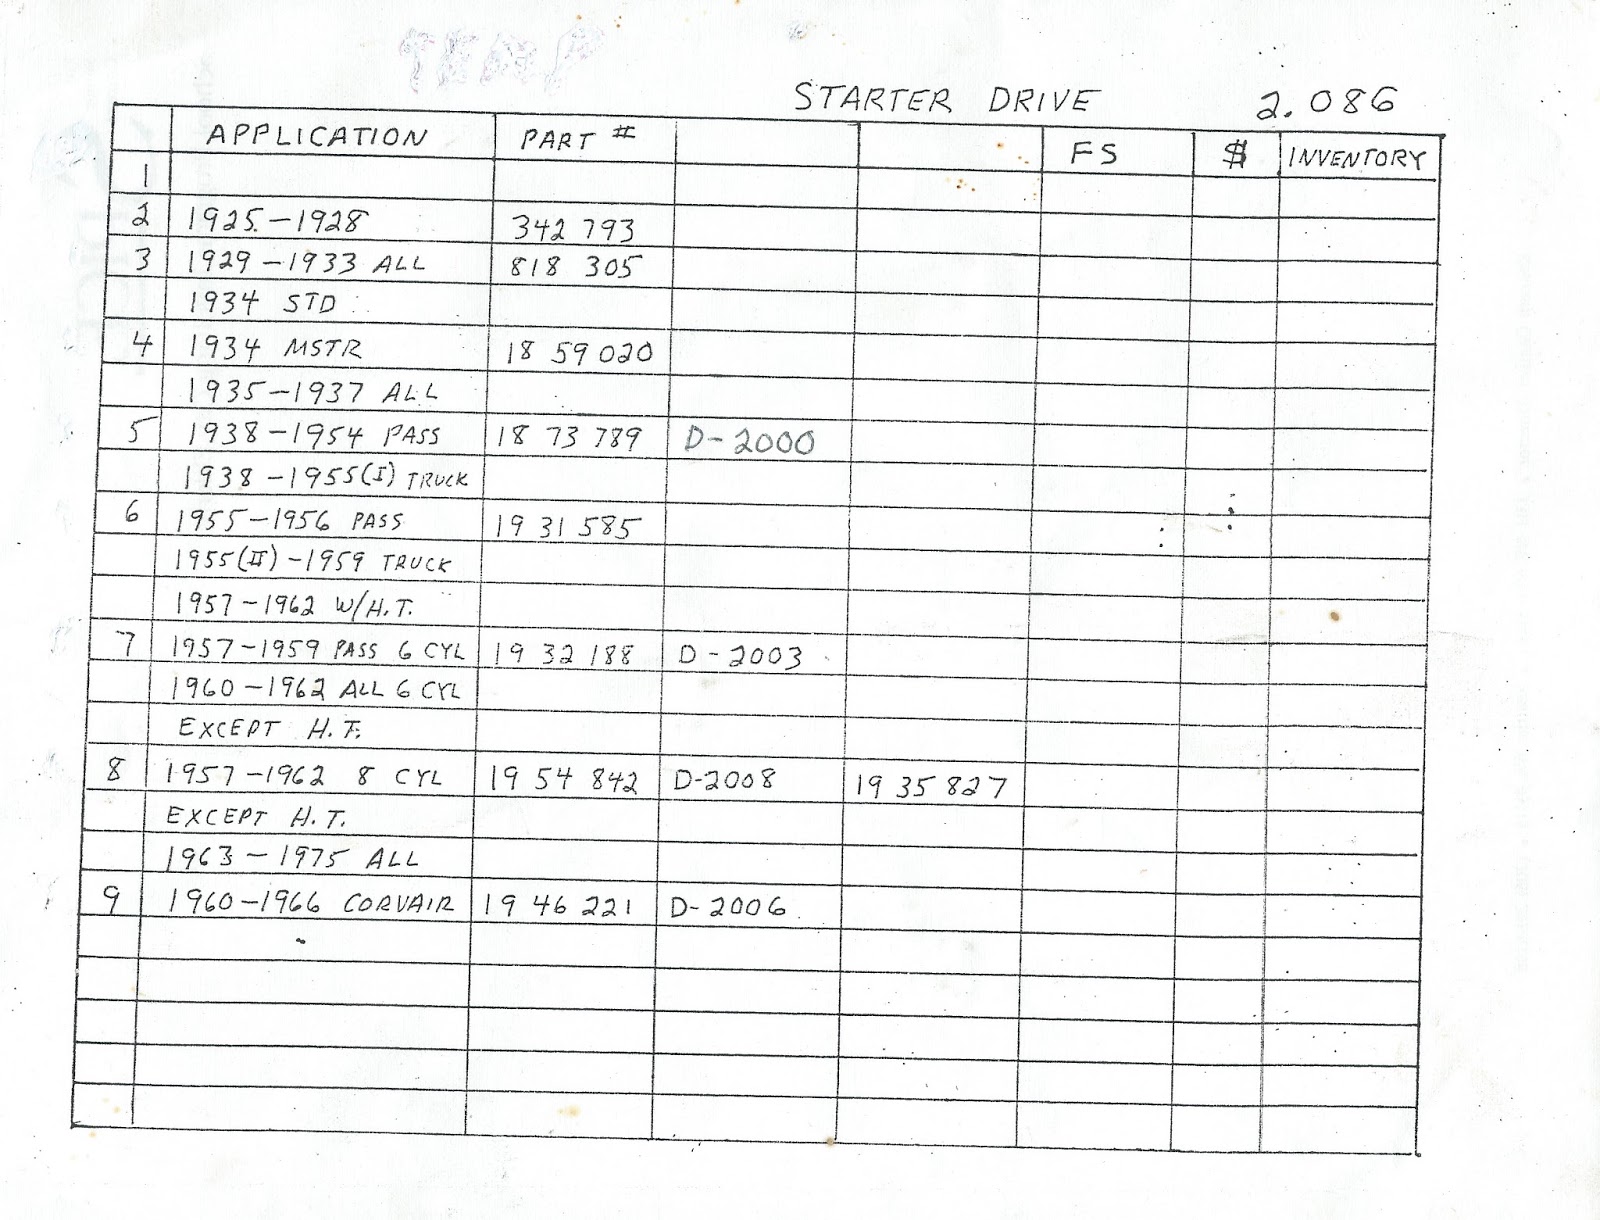 STARTER DRIVE 2.086
APPLICATION PART # FS $ INVENTORY
1
2 1925-1928 342 793
3 1929-1933 ALL 818 305
1934 STD
4 1934 MSTR 18 59 020
1935-1937 ALL
5 1938-1954 PASS 18 73 789 D-2000
1938-1955(I) TRUCK
6 1955-1956 PASS 19 31 585
1955(II)-1959 TRUCK
1957-1962 W/H.T.
7 1957-1959 PASS 6 CYL 19 32 188 D-2003
1960-1962 ALL 6 CYL
EXCEPT H.T.
8 1957-1962 8 CYL 19 54 842 D-2008 19 35 827
EXCEPT H.T.
1963-1975 ALL
9 1960-1966 CORVAIR 19 46 221 D-2006